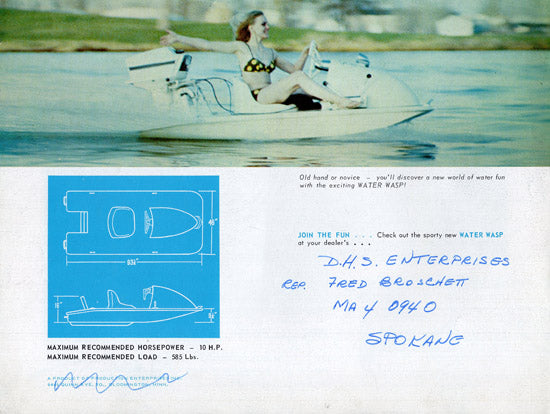 Old hand or novice – you'll discover a new world of water fun
with the exciting WATER WASP!
JOIN THE FUN . . . Check out the sporty new WATER WASP
at your dealer's . . .
D.H.S. ENTERPRISES
REP. FRED BROSCHETT
MA 4 0940
SPOKANE
48"
93¼"
MAXIMUM RECOMMENDED HORSEPOWER – 10 H.P.
MAXIMUM RECOMMENDED LOAD – 585 Lbs.
A PRODUCT OF PRODUCTION ENTERPRISES INC.
AVE. SO., BLOOMINGTON, MINN.